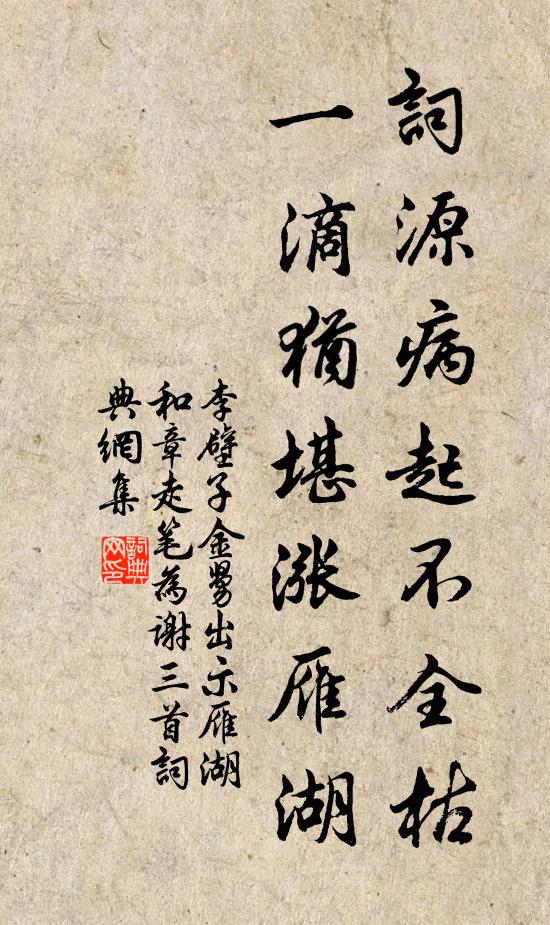 詞源病起不全枯
一滴猶堪漲雁湖
李壁子金甥出示雁湖
和章走笔為谢三首詞
典網集
詞典
网印